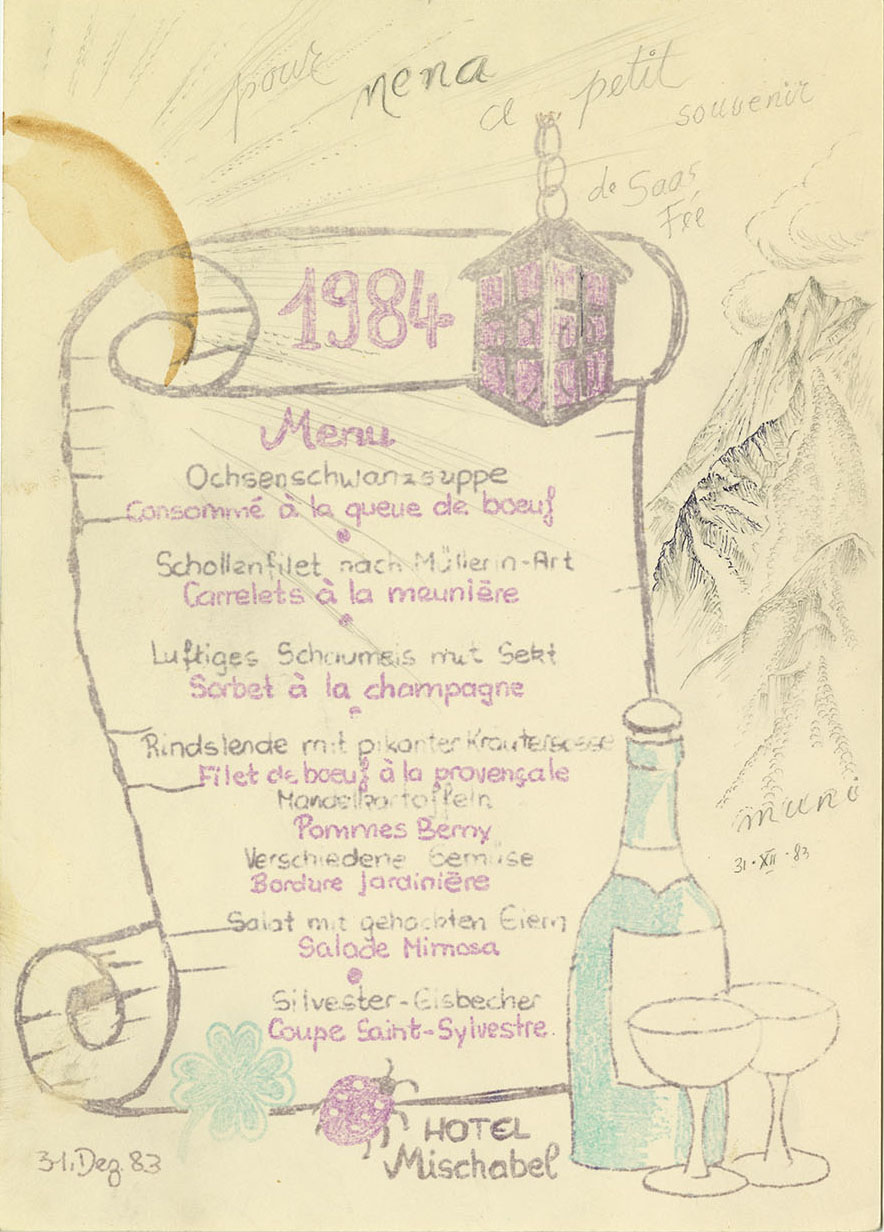 pour nena a petit souvenir
de Saas
Fée
1984
Menu
Ochsenschwanzsuppe
Consommé à la queue de boeuf
Schollenfilet nach Müllerin-Art
Carrelets à la meunière
Luftiges Schaumeis mit Sekt
Sorbet à la champagne
Rindslende mit pikanter Kräutersosse
Filet de boeuf à la provençale
Mandelkartoffeln
Pommes Berny
Verschiedene Gemüse
Bordure jardinière
Salat mit gehackten Eiern
Salade Mimosa
Silvester-Eisbecher
Coupe Saint-Sylvestre
muni
31·XII·83
HOTEL
Mischabel
31. Dez. 83